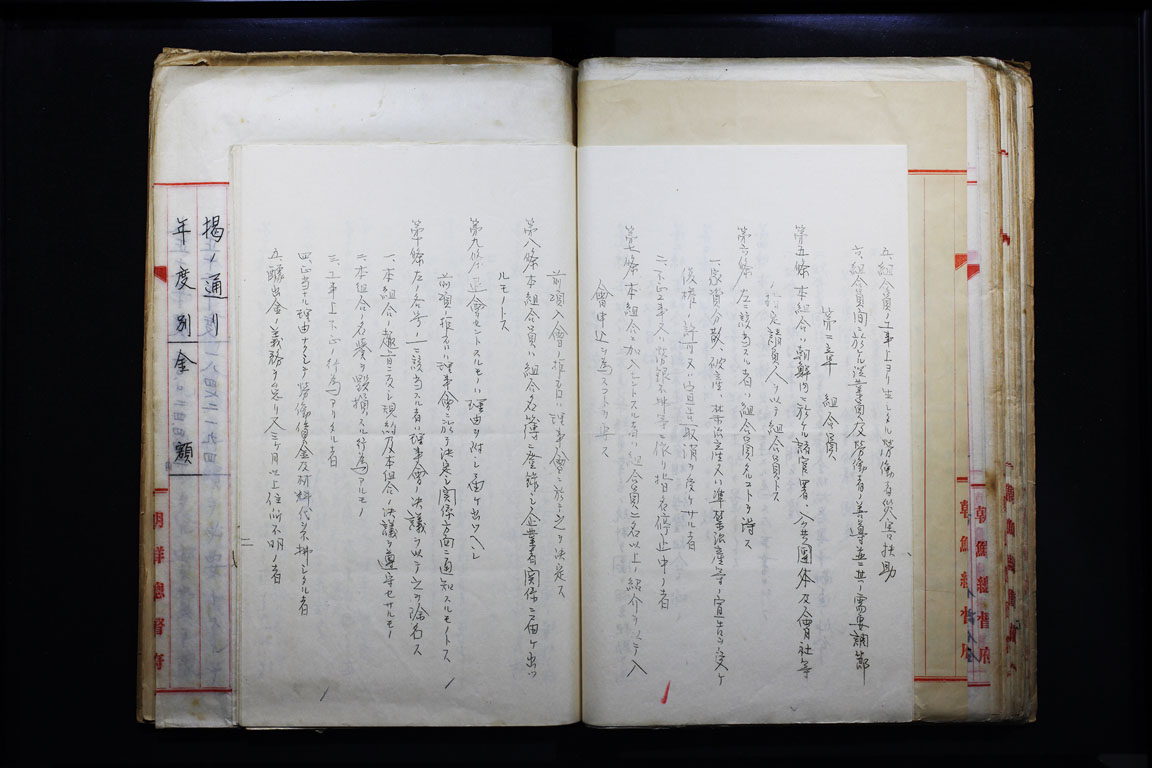 五、組合員ノ工事上ヨリ生シタル労働者災害扶助
六、組合員間ニ於ケル従業員及労働者ノ善導並ニ其ノ需要調節
第三章 組合員
第五條 本組合ハ朝鮮内ニ於ケル諸官署、公共團体及會社等
指定請負人ヲ以テ組合員トス
第六條 左ニ該当スル者ハ組合員タルコトヲ得ス
一、家資分散、破産、禁治産又ハ準禁治産等ノ宣告ヲ受ケ
復権ノ許可又ハ宣告取消ヲ受ケサル者
二、不正工事又ハ
等ニ依リ指名停止中ノ者
第七條 本組合ニ加入セントスル者ハ組合員二名以上ノ紹介ヲ以テ入
會申込ヲ為スコトヲ要ス
前項入會ノ拒否ハ理事會ニ於テ之ヲ決定ス
第八條 本組合員ハ組合名簿ニ登録シ企業者関係ニ届ケ出ツ
ルモノトス
第九條 退會セントスルモノハ理由ヲ附シ届ケ出ツヘシ
前項ノ拒否ハ理事會ニ於テ決定シ関係方面ニ通知スルモノトス
第十條 左ノ各号ノ一ニ該当スル者ハ理事會ノ決議ヲ以テ之ヲ除名ス
一、本組合ノ趣旨ニ反シ規約及本組合ノ決議ヲ遵守セサルモノ
二、本組合ノ名誉ヲ毀損スル行為アルモノ
三、工事上不正ノ行為アリタル者
四、正当ナル理由ナクシテ労働賃金及材料代ヲ不拂シタル者
五、醵出金ノ義務ヲ怠リ又三ヶ月以上住所不明ノ者
二
掲ノ通リ
年度別金額
朝鮮總督府
朝鮮總督府
朝鮮總督府